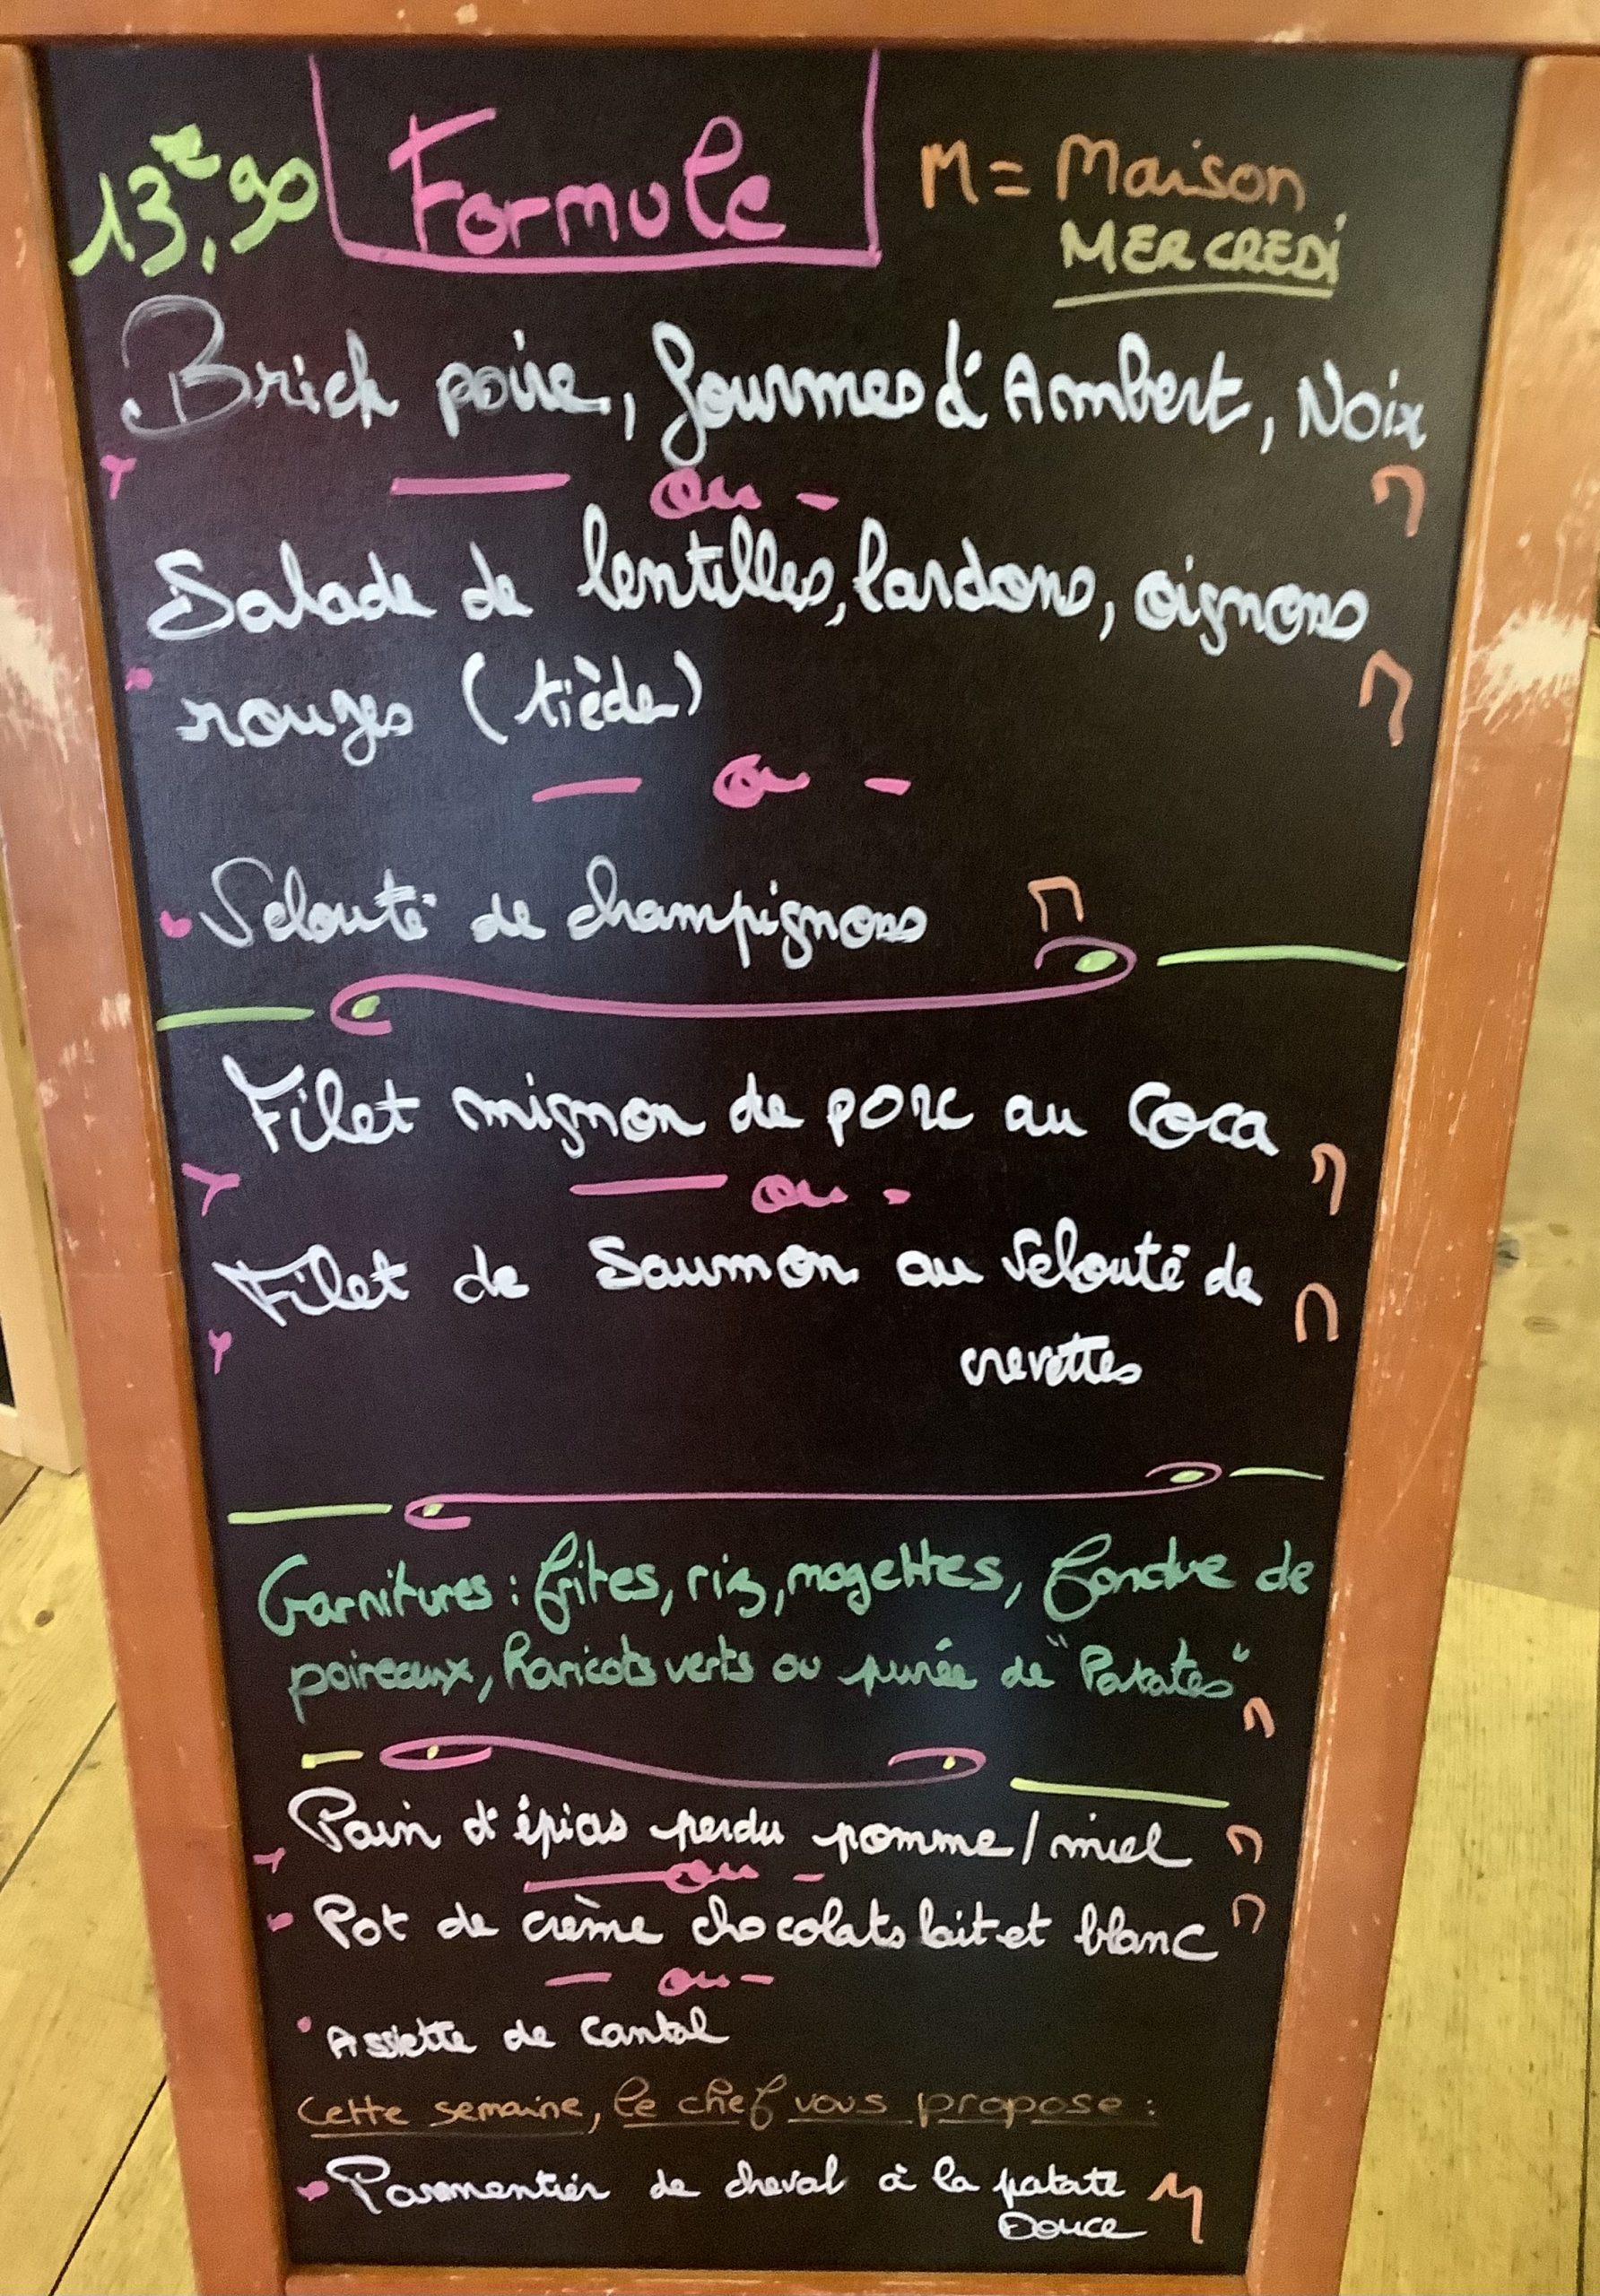 13€,90 Formule M = Maison
MERCREDi
Brick poire, fourmes d'Ambert, Noix
M
— ou -
Salade de lentilles, lardons, oignons
rouges (tiède) M
— ou -
Velouté de champignons M
Filet mignon de porc au Coca
M
— ou -
Filet de Saumon au velouté de
crevettes M
Garnitures : frites, riz, mogettes, fondue de
poireaux, haricots verts ou purée de "Patates"
M
Pain d'épices perdu pomme / miel M
— ou -
Pot de crème chocolats lait et blanc M
— ou -
Assiette de Cantal
Cette semaine, le chef vous propose :
Parmentier de cheval à la patate M
Douce